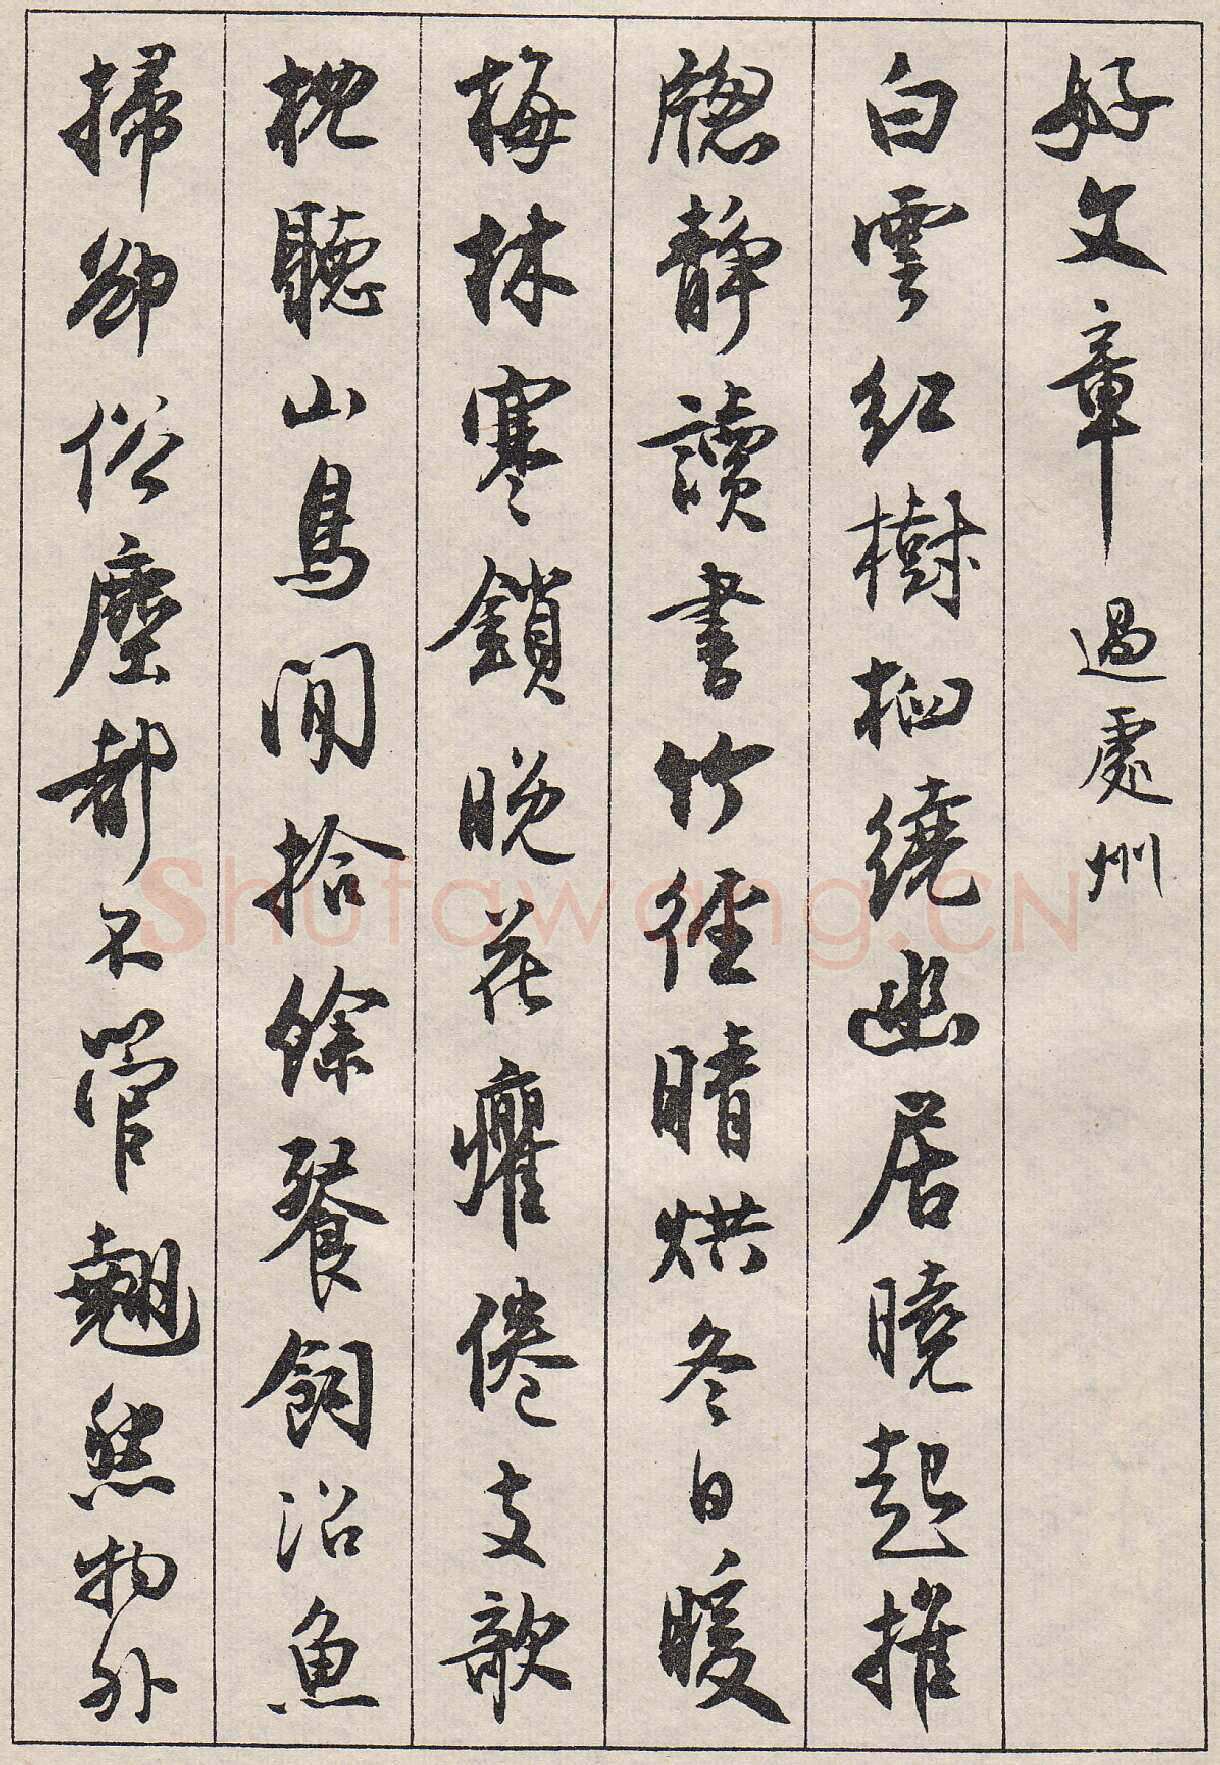 好文章 過處州
白雲紅樹栖繞幽居曉起推
窻靜讀書竹徑晴烘冬日暖
梅林寒鎖晚花癯倦支欹
枕聽山鳥閒拾餘餐飼沼魚
掃卻俗塵都不管翹然物外
Shufawang.CN